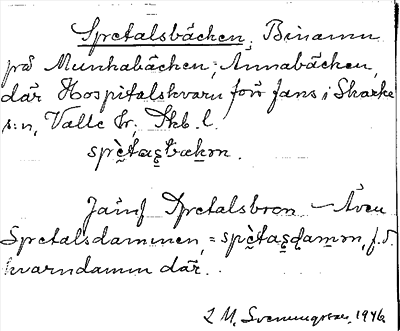 Spetalsbäcken, Binamn
på Munkabäcken, Annabäcken,
där Hospitalskvarn förr fans i Skarke
s:n, Valle hr, Skb. l.
spètas̨bækən.
Jämf Spetalsbron – Även
Spetalsdammen, = spètas̨damən, f.d.
kvarndamm där.
L M. Svenungsson, 1946